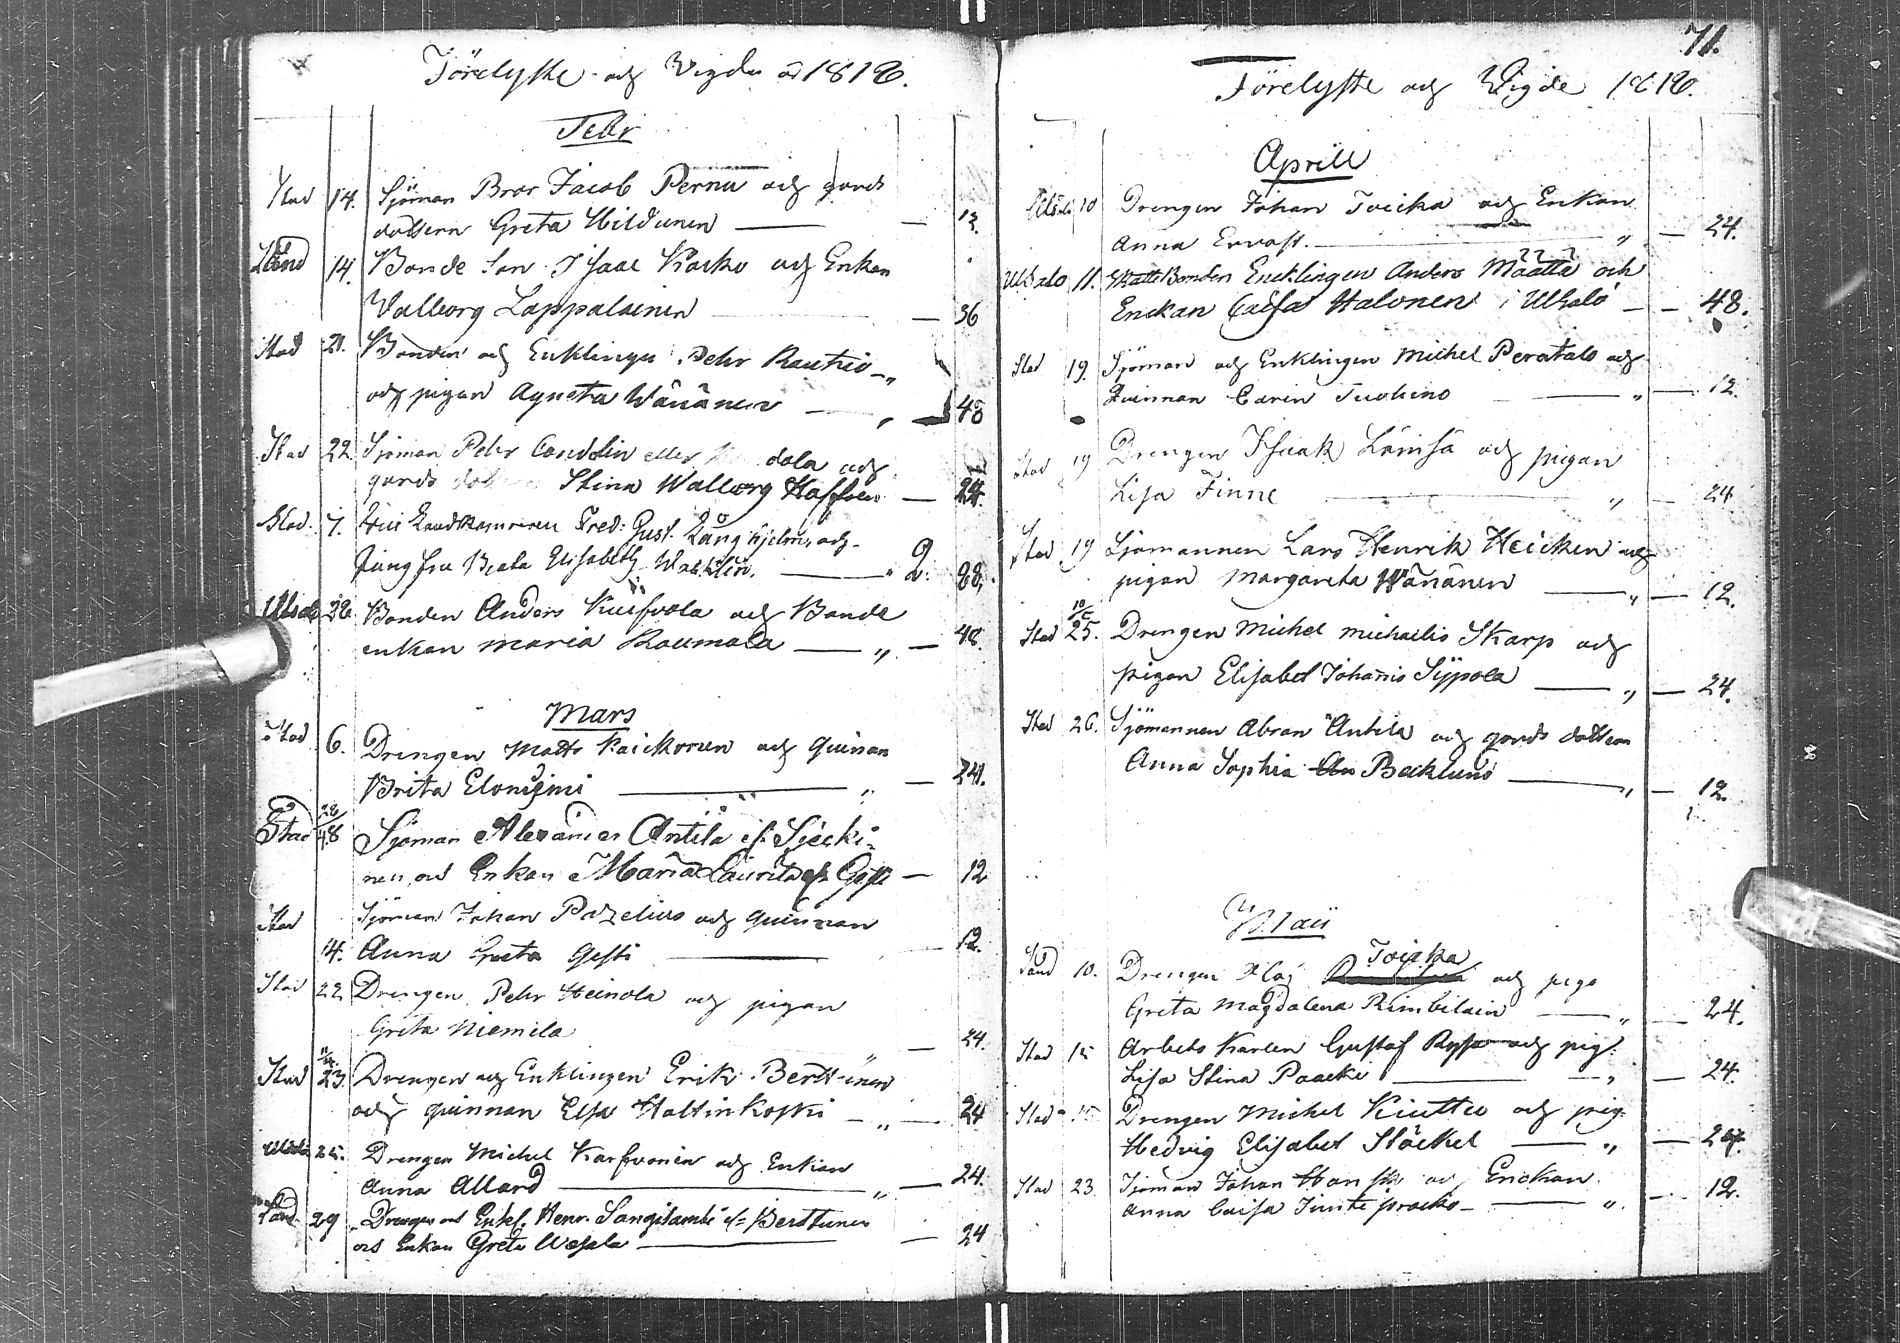 Förelyste och Vigde år 1816.
Febr
Stad 14. Sjöman Bror Jacob Pernu och gards
dottern Greta Hildunen — 12.
Land 14. Bonde Son Isaac Karko och Enkan
Walborg Lappalainen — 36
Stad 21. Bonden och Enklingen Pehr Rautio
och pigan Agneta Wänänen — 48
Stad 22 Sjöman Pehr dala och
gards Stina Walborg — 24.
Stad. 7. Fred: Gust. Lång hjelm, och
Jungfru Beata Elisabeth Wacklin. — 2. 88.
Bonden Anders och Bonde
enkan Maria Raumala — 48.
Mars
Stad 6. Drengen Matts Kaickonen och quinan
Brita Eloniemi — 24.
Stad 28/48 Sjöman Alexander Antila
nen, och Enkan Maria Laurila — 12
Stad Sjöman Johan Pazelius och quinnan
14. Anna Greta Gesti — 12.
Stad 22 Drengen Pehr Heinola och pigan
Greta Niemila — 24.
Stad 23. Drengen och Enklingen Erik Berttunen
och quinnan Elsa Haltinkoski — 24
25. Drengen Michel Karfvonen och Enkan
Anna Allard — 24.
Land 29 Drengen och Enkl. Henr. Sangilambi Berttunen
och Enkan Greta — 24
71.
Förelyste och Vigde 1816.
Aprill
10 Drengen Johan Toicka och Enkan
Anna Ervast. — 24.
11. Skatte Bonden Encklingen Anders Määttä och
Enckan Caisa Halonen i — 48.
Stad 19. Sjöman och Enklingen Michel Peratalo och
Quinnan Carin Tuohino — 12.
Stad 19 Drengen Isaak Lämsä och pigan
Lisa Finne — 24
Stad 19 Sjömannen Lars Henrik Heicken och
pigan Margareta Wänänen — 12.
Stad 25. Drengen Michel Michaelis Skarp och
pigan Elisabet Johannis Sÿpola — 24.
Stad 26. Sjömannen Abran Antila och gards dottern
Anna Sophia Backlund — 12.
Maii
Land 10. Drengen Toicka och piga
Greta Magdalena Rimbilain — 24.
Stad 15 Arbets Karlen Gustaf och pig.
Lisa Stina Paacki — 24.
Stad 15 Drengen Michel Kiuttu och pig.
Hedvig Elisabet Stöckel — 24.
Stad 23 Sjöman Johan och Enckan
Anna Caisa — 12.